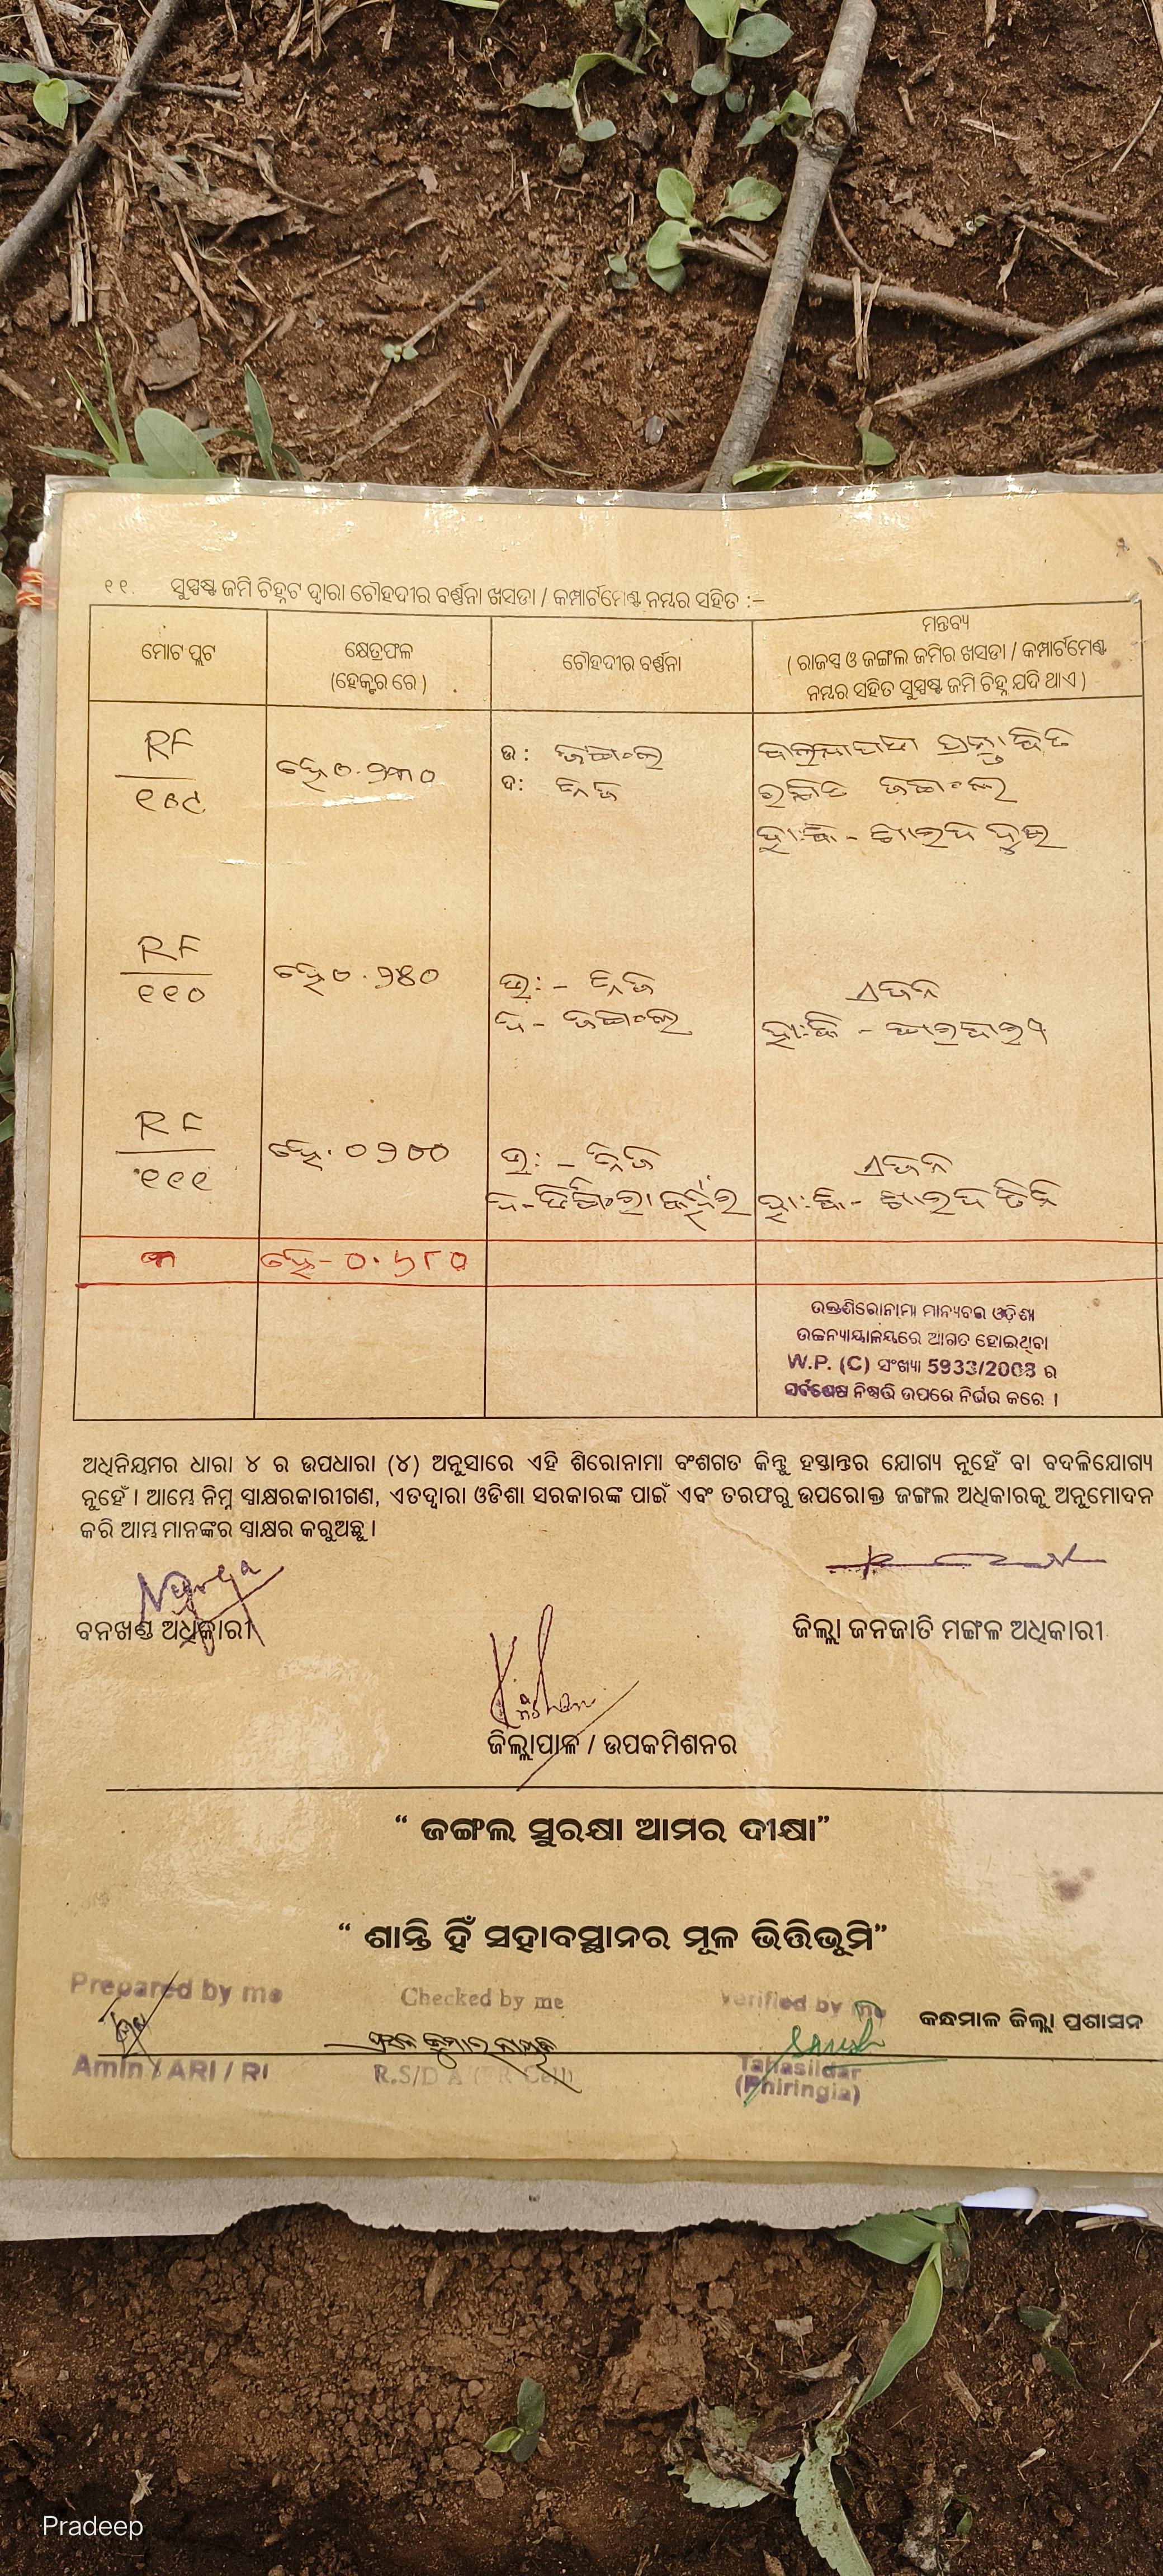 ୧୧. ସୁସ୍ପଷ୍ଟ ଜମି ଚିହ୍ନଟ ଦ୍ଵାରା ଚୌହଦୀର ବର୍ଣ୍ଣନା ଖସଡା / କମ୍ପାର୍ଟମେଣ୍ଟ ନମ୍ବର ସହିତ :–
ମୋଟ ପ୍ଲଟ
କ୍ଷେତ୍ରଫଳ
(ହେକ୍ଟର ରେ)
ଚୌହଦୀର ବର୍ଣ୍ଣନା
ମନ୍ତବ୍ୟ
( ରାଜସ୍ୱ ଓ ଜଙ୍ଗଲ ଜମିର ଖସଡା / କମ୍ପାର୍ଟମେଣ୍ଟ
ନମ୍ବର ସହିତ ସୁସ୍ପଷ୍ଟ ଜମି ଚିହ୍ନ ଯଦି ଥାଏ )
RF
୧୦୯
ହେ ୦.୨୩୦
ଉ: ଜଙ୍ଗଲ
ଦ: ନିଜ
ରକ୍ଷିତ ଜଙ୍ଗଲ
RF
୧୧୦
ହେ ୦.୨୫୦
ଉ: – ନିଜ
ଦ – ଜଙ୍ଗଲ
RF
୧୧୧
ହେ. ୦୨୦୦
ଉ: – ନିଜ
୩
ହେ – ୦.୬୮୦
ଉକ୍ତଶିରୋନାମା ମାନ୍ୟବର ଓଡ଼ିଶା
ଉଚ୍ଚନ୍ୟାୟାଳୟରେ ଆଗତ ହୋଇଥିବା
W.P. (C) ସଂଖ୍ୟା 5933/2008 ର
ସର୍ବଶେଷ ନିଷ୍ପତ୍ତି ଉପରେ ନିର୍ଭର କରେ ।
ଅଧିନିୟମର ଧାରା ୪ ର ଉପଧାରା (୪) ଅନୁସାରେ ଏହି ଶିରୋନାମା ବଂଶଗତ କିନ୍ତୁ ହସ୍ତାନ୍ତର ଯୋଗ୍ୟ ନୁହେଁ ବା ବଦଳିଯୋଗ୍ୟ
ନୁହେଁ । ଆମ୍ଭେ ନିମ୍ନ ସ୍ୱାକ୍ଷରକାରୀଗଣ, ଏତଦ୍ୱାରା ଓଡିଶା ସରକାରଙ୍କ ପାଇଁ ଏବଂ ତରଫରୁ ଉପରୋକ୍ତ ଜଙ୍ଗଲ ଅଧିକାରକୁ ଅନୁମୋଦନ
କରି ଆମ୍ଭ ମାନଙ୍କର ସ୍ୱାକ୍ଷର କରୁଅଛୁ ।
ବନଖଣ୍ଡ ଅଧିକାରୀ
ଜିଲ୍ଲା ଜନଜାତି ମଙ୍ଗଳ ଅଧିକାରୀ
ଜିଲ୍ଲାପାଳ / ଉପକମିଶନର
“ ଜଙ୍ଗଲ ସୁରକ୍ଷା ଆମର ଦୀକ୍ଷା”
“ ଶାନ୍ତି ହିଁ ସହାବସ୍ଥାନର ମୂଳ ଭିତ୍ତିଭୂମି”
Prepared by me
Checked by me
Verified by me
କନ୍ଧମାଳ ଜିଲ୍ଲା ପ୍ରଶାସନ
Amin / ARI / RI
R.S/D A (FR Cell)
Tahasildar
(Phiringia)
Pradeep